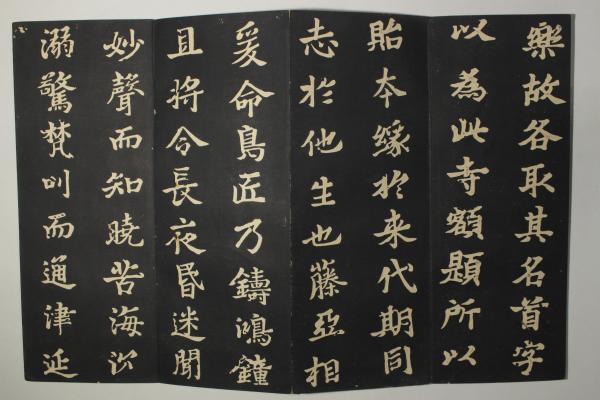 樂故各取其名首字
以為此寺額題所以
貽本緣於来代期同
志於他生也藤亞相
爰命鳧匠乃鑄鴻鐘
且將令長夜昏迷聞
妙聲而知曉苦海沉
溺驚梵叫而通津延